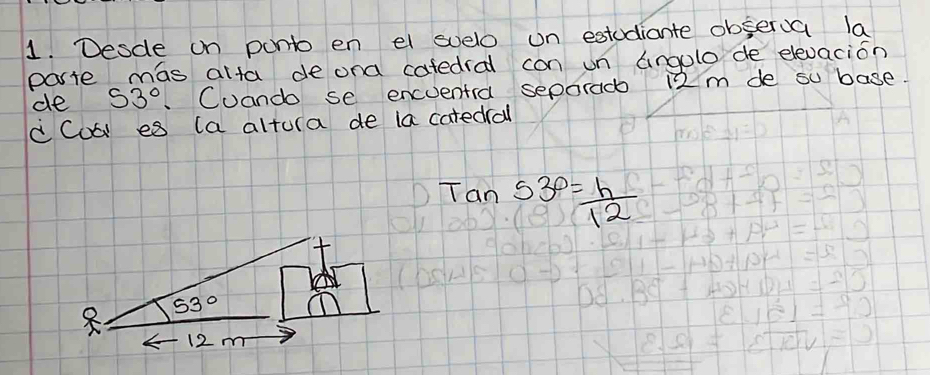 1. Desde un punto en el suelo un estudiante observa la
parte más alta de una catedral con un ángulo de elevación
de 53°. Cuando se encuentra separado 12 m de su base.
¿Cuál es la altura de la catedral
Tan 53° = h
12
53°
12 m